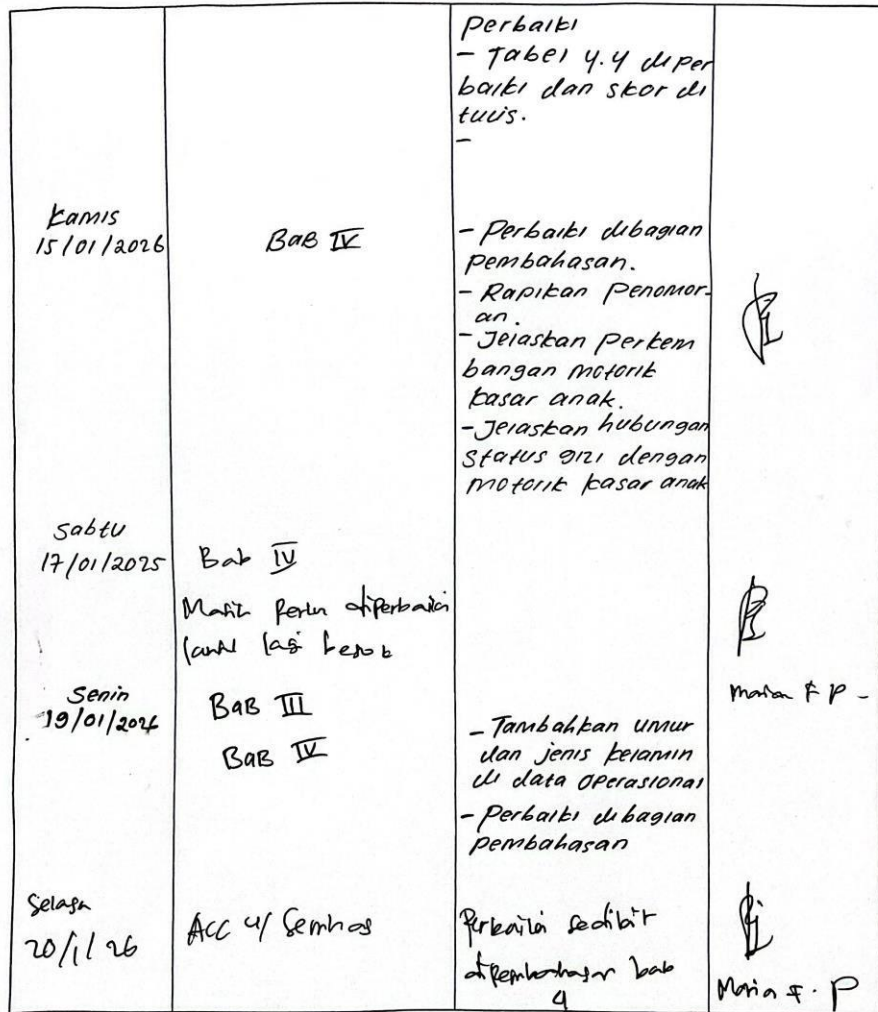 Perbaiki
- Tabel 4.4 diper
baiki dan skor di
tulis.
-
Kamis
15/01/2026
BAB IV
- Perbaiki dibagian
pembahasan.
- Rapikan Penomor-
an.
- Jelaskan Perkem
bangan motorik
kasar anak.
- Jelaskan hubungan
status gizi dengan
motorik kasar anak
Sabtu
17/01/2025
Bab IV
Masih Perlu diperbaiki
lagi besok
Maria F P -
Senin
19/01/2026
BAB III
BAB IV
- Tambahkan umur
dan jenis kelamin
di data operasional
- Perbaiki dibagian
pembahasan
Selasa
20/1/26
ACC u/ Semhas
Perbaiki sedikit
dipembahasan bab
4
Maria F. P